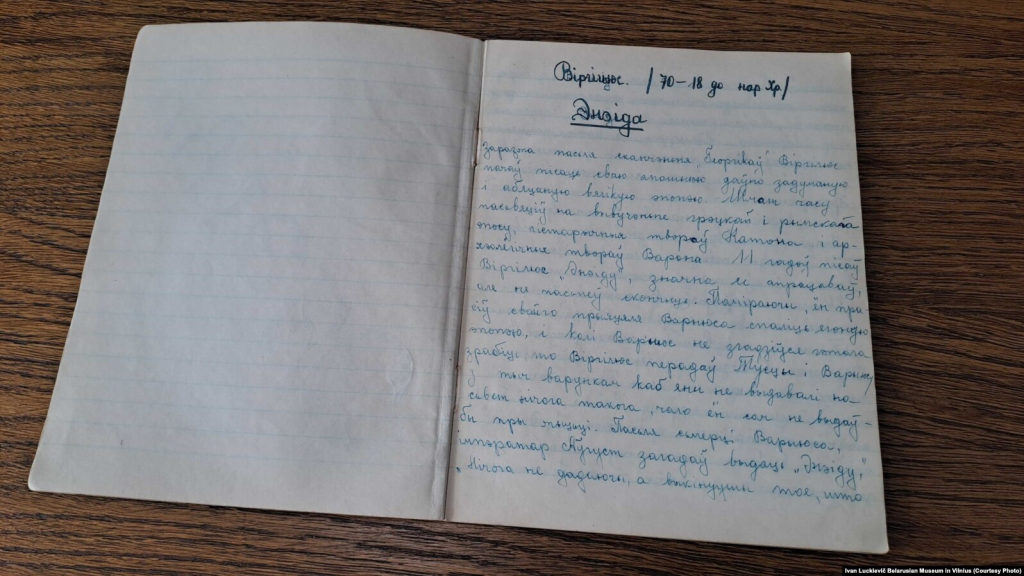 Віргілюс. /70–18 до нар Хр/
Энэіда
Зараз па пасьля сканчэньня „Георгікаў" Віргілюс
пачаў пісаць сваю апошнюю даўно задуманую
і абяцаную вялікую эпопэю. Шмат часу
пасьвяціў на вывучэньне грэцкага і рымскага
эпосу, гістарычных твораў Катона і ар-
хэолёгічных твораў Варона. 11 гадоў пісаў
Віргілюс „Энэіду", значна яе апрацаваў,
але не пасьпеў скончыць. Паміраючы, ён пра
сіў свайго прыяцеля Варыюса спаліць ягоную
эпопэю, і калі Варыюс не згадзіўся гэтага
зрабіць то Віргілюс перадаў Тукцы і Варыю,
з тым варункам каб яны не выдавалі на
сьвет нічога такога, чаго ён сам не выдаў-
бы пры жыцьці. Пасьля сьмерці Варыюса,
імпэратар Аўгуст загадаў выдаць „Энэіду,"
„Нічога не дадаючы, а выкінуўшы тое, што
Ivan Luckievič Belarusian Museum in Vilnius (Courtesy Photo)